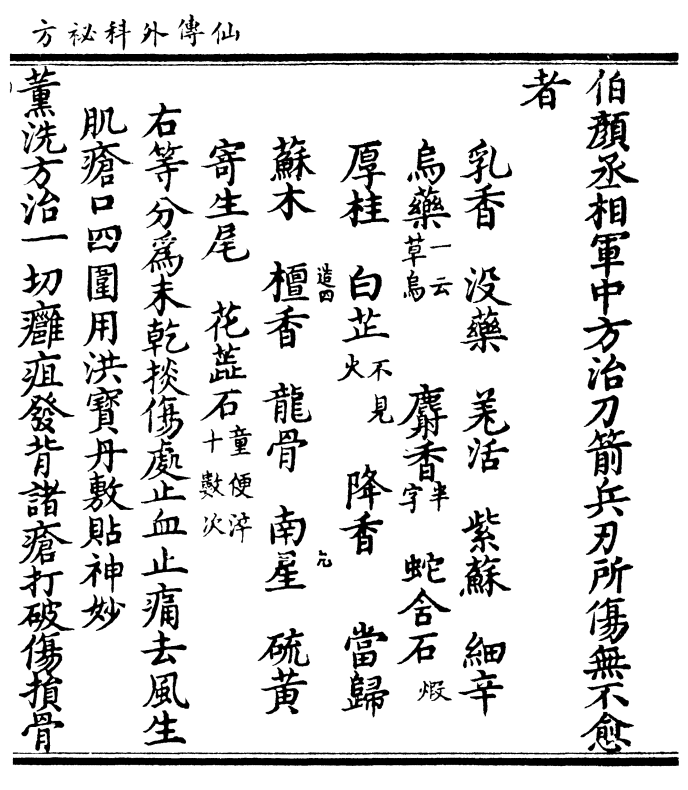 仙傳外科祕方
伯顏丞相軍中方治刀箭兵刃所傷無不愈
者
乳香　没藥　羌活　紫蘇　細辛
烏藥一云草烏　麝香半字　蛇含石煅
厚桂　白芷不見火　降香　當歸
蘇木　檀香　龍骨　南星　硫黄
寄生尾　花蕋石童便淬十數次
右等分爲末乾掞傷處止血止痛去風生
肌瘡口四圍用洪寳丹敷貼神妙
薰洗方治一切癰疽發背諸瘡打破傷損骨
造四
九